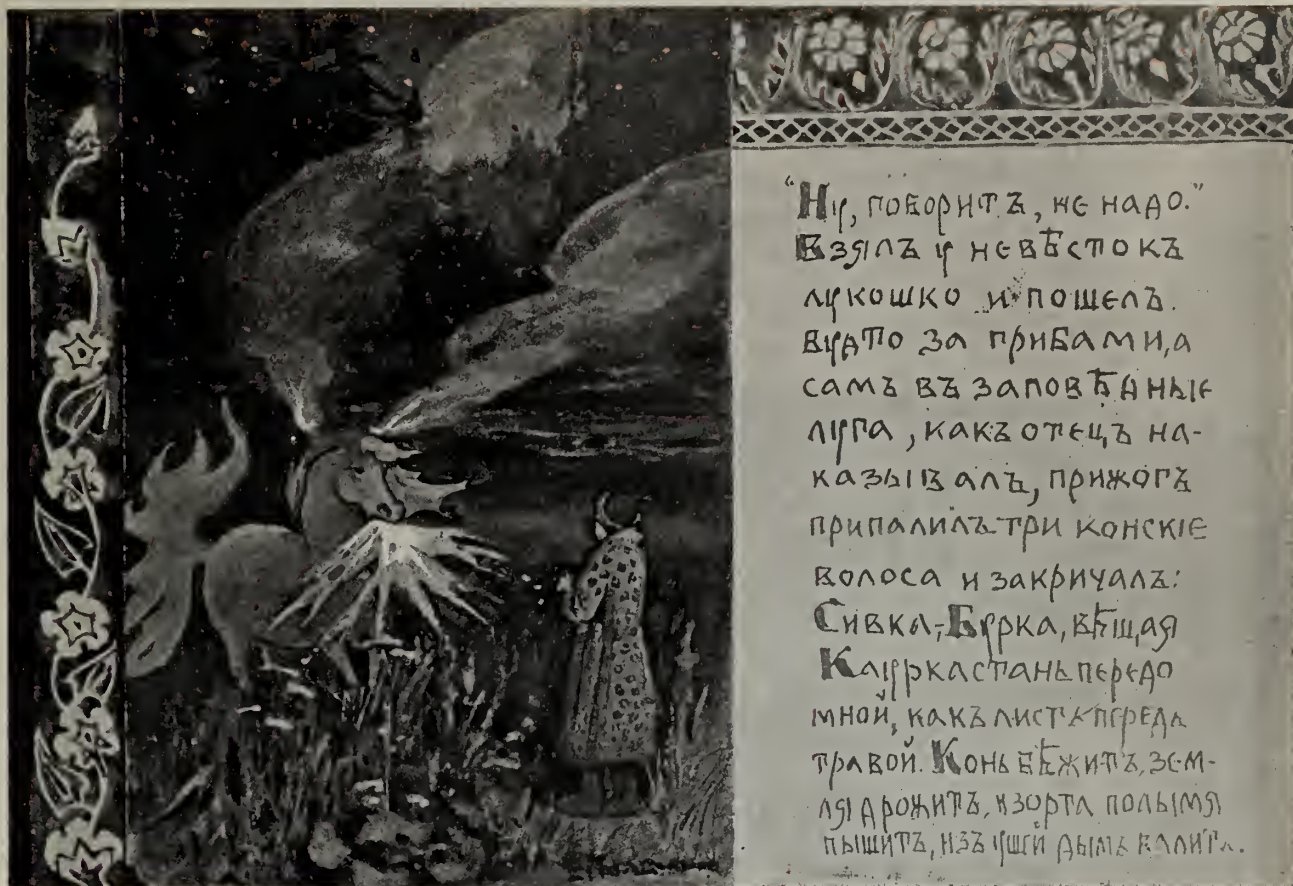 "Ну, говоритъ, не надо."
Взялъ у невѣстокъ
лукошко и пошелъ.
Будто за грибами, а
самъ въ заповѣдные
луга, какъ отецъ на-
казывалъ, прижогъ
припалилъ три конскіе
волоса и закричалъ:
Сивка, Бурка, вѣщая
Каурка стань передо
мной, какъ листъ передъ
травой. Конь бѣжитъ, зем-
ля дрожитъ, изо рта полымя
пышитъ, изъ ушей дымъ валитъ.